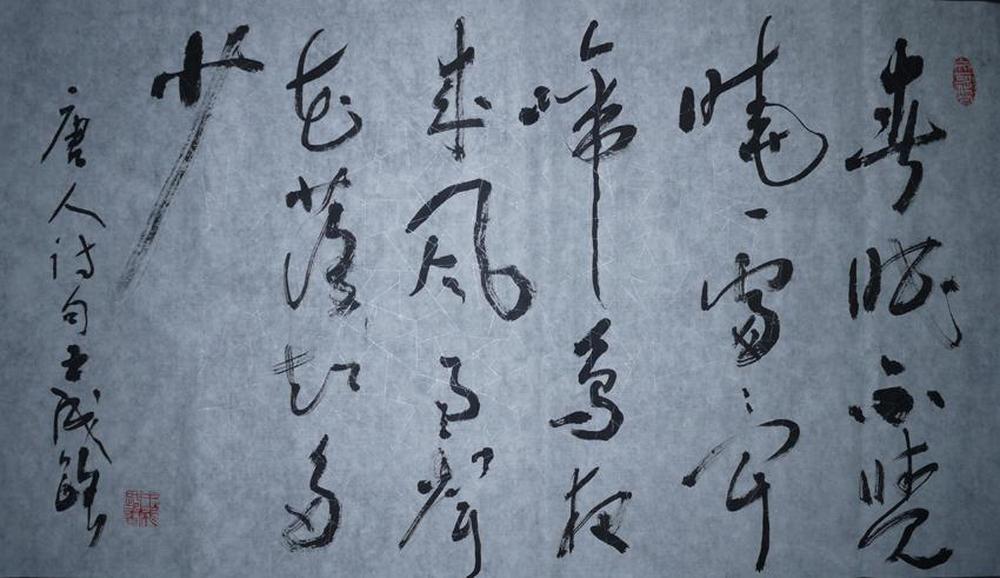 春眠不觉
晓处处闻
啼鸟夜
来风雨声
花落知多
少
唐人诗句